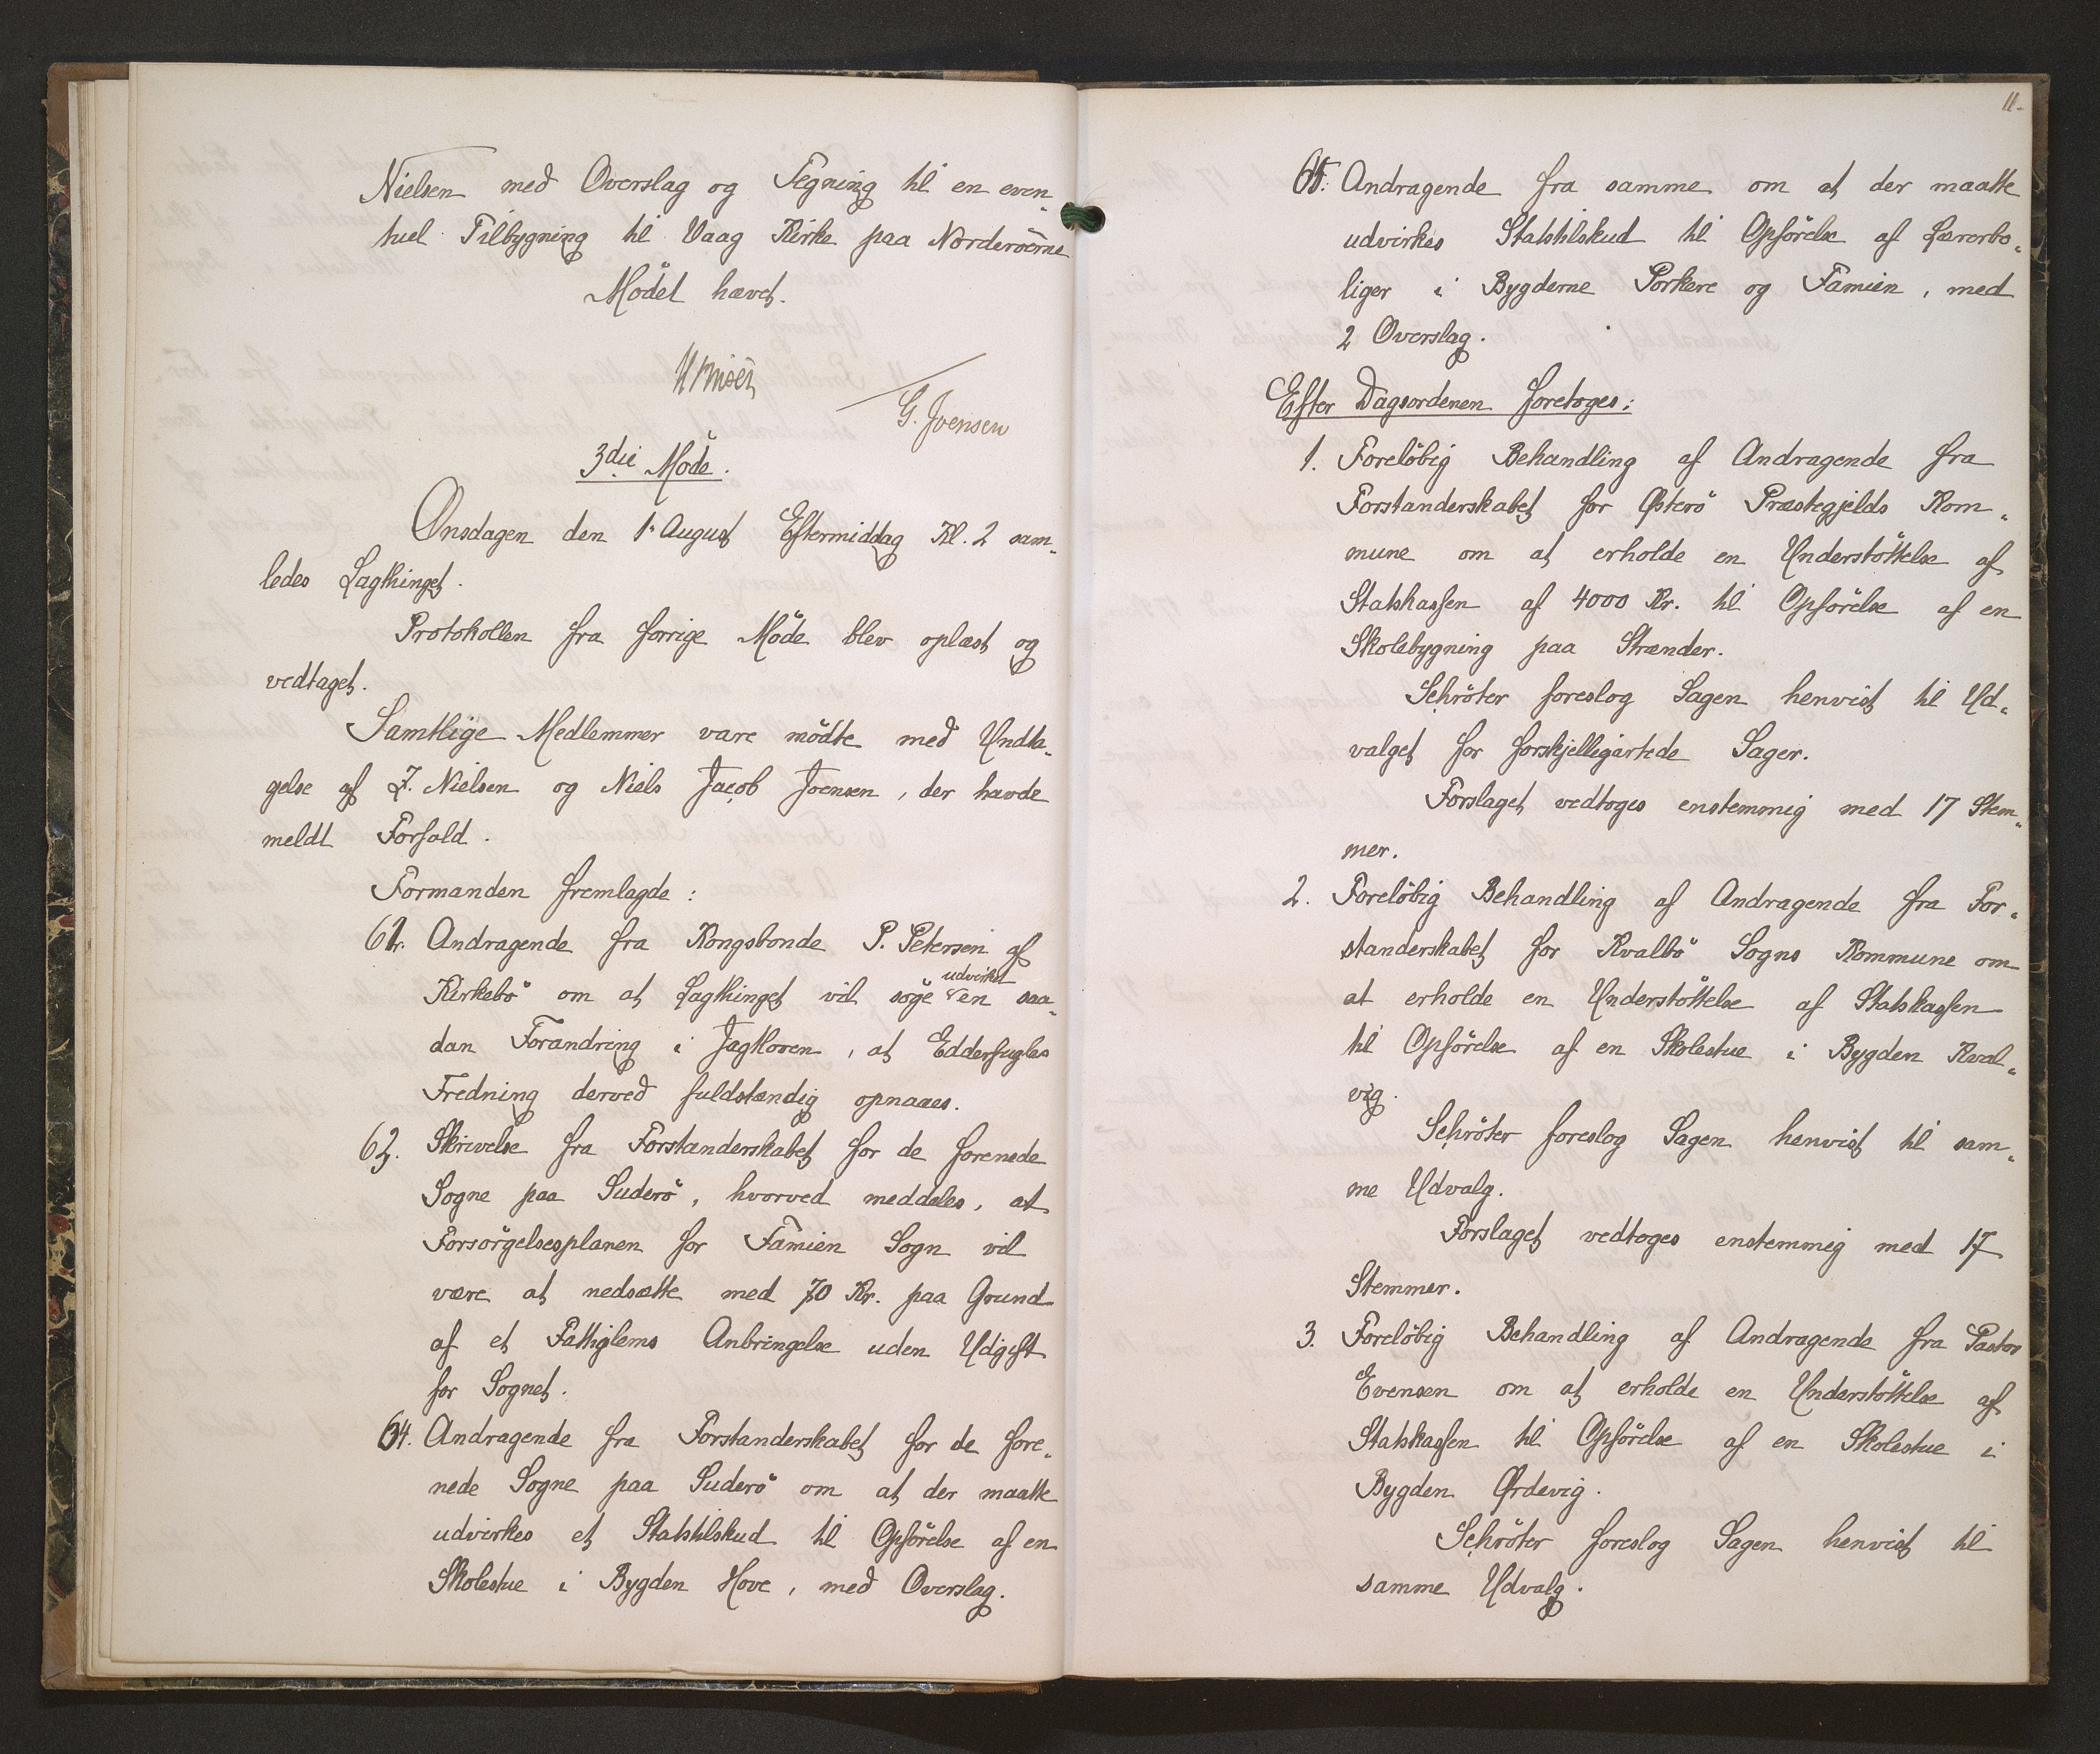 Nielsen med Overslag og Tegning til en even„
tuel Tilbygning til Vaag Kirke paa Norderöerne
Mödet hævet.
G. Joensen
3die Möde.
Onsdagen den 1. August Eftermiddag Kl. 2 sam„
ledes Lagthinget.
Protokollen fra forrige Möde blev oplæst og
vedtaget.
Samtlige Medlemmer vare mödte med Undta„
gelse af J. Nielsen og Niels Jacob Joensen, der havde
meldt Forfald.
Formanden fremlagde:
62. Andragende fra Kongsbonde P. Petersen af
Kirkebö om at Lagthinget vil söge udvirket en saa„
dan Forandring i Jagtloven, at Edderfugles
Fredning derved fuldstændig opnaaes.
63. Skrivelse fra Forstanderskabet for de forenede
Sogne paa Suderö, hvorved meddeles, at
Forsörgelsesplanen for Famien Sogn vil
være at nedsætte med 70 Kr. paa Grund
af et Fattiglems Anbringelse uden Udgift
for Sognet.
64. Andragende fra Forstanderskabet for de fore„
nede Sogne paa Suderö om at der maatte
udvirkes et Statstilskud til Opförelse af en
Skolestue i Bygden Hove, med Overslag.
11.
65. Andragende fra samme om at der maatte
udvirkes Statstilskud til Opförelse af Lærerbo„
liger i Bygderne Porkere og Famien, med
2 Overslag.
Efter Dagsordenen foretoges:
1. Forelöbig Behandling af Andragende fra
Forstanderskabet for Østerö Præstegjelds Kom„
mune om at erholde en Understöttelse af
Statskassen af 4000 Kr. til Opförelse af en
Skolebygning paa Strænder.
Schröter foreslog Sagen henvist til Ud„
valget for forskjelligartede Sager.
Forslaget vedtoges enstemmig med 17 Stem„
mer.
2. Forelöbig Behandling af Andragende fra For„
standerskabet for Kvalbö Sogns Kommune om
at erholde en Understöttelse af Statskassen
til Opförelse af en Skolestue i Bygden Kval„
vig.
Schröter foreslog Sagen henvist til sam„
me Udvalg.
Forslaget vedtoges enstemmig med 17
Stemmer.
3. Forelöbig Behandling af Andragende fra Pastor
Evensen om at erholde en Understöttelse af
Statskassen til Opförelse af en Skolestue i
Bygden Ørdevig.
Schröter foreslog Sagen henvist til
samme Udvalg.